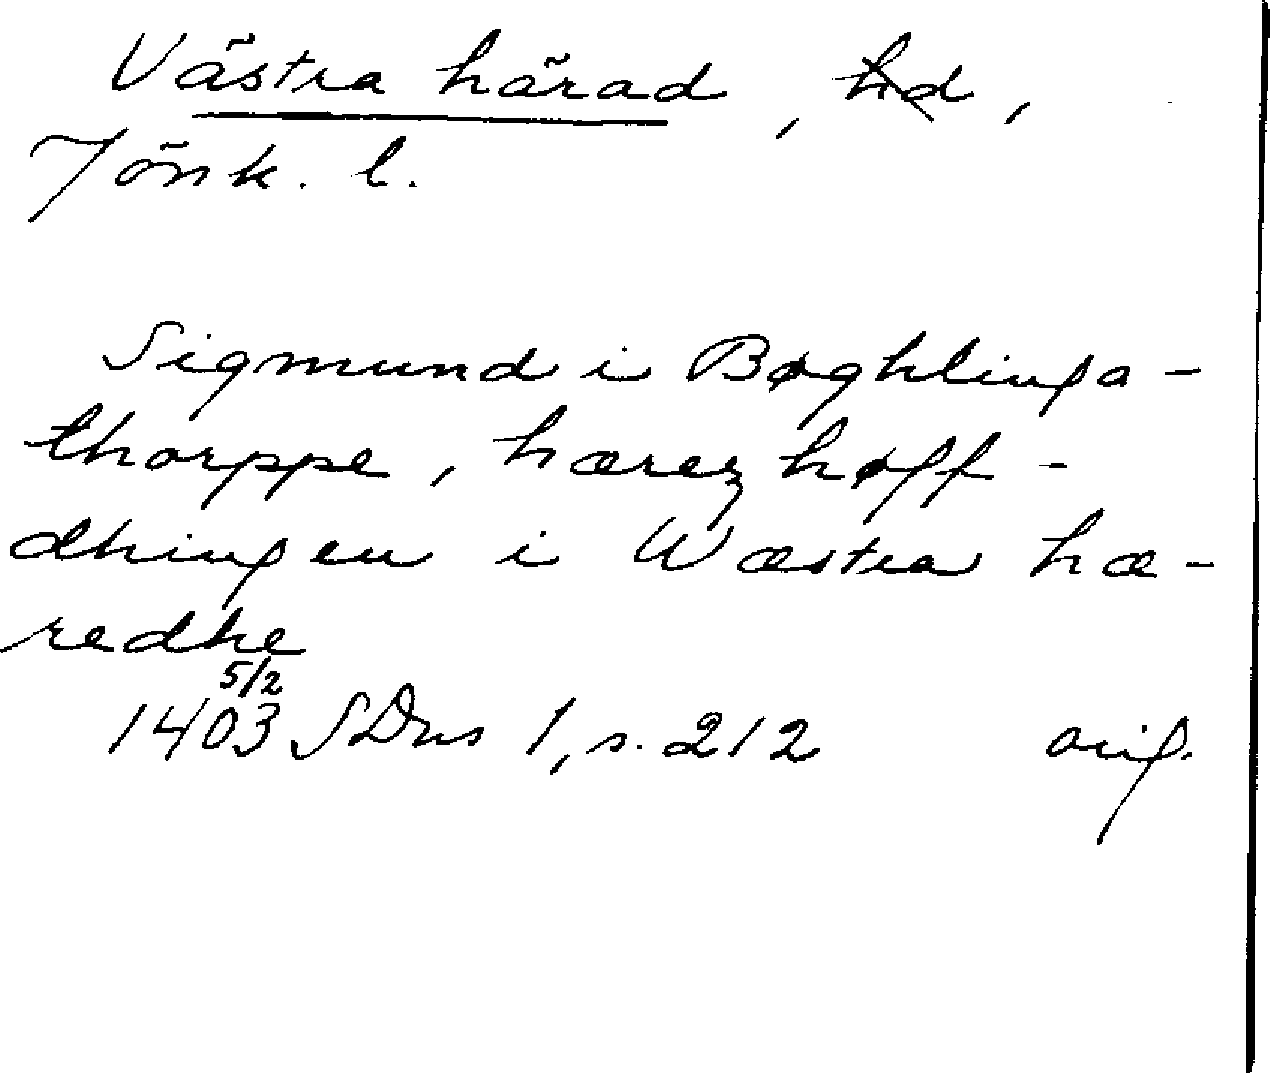 Västra härad, hd,
Jönk. l.
Sigmund i Bøghlinga-
thorppe, hærez høff-
dhingen i Wæstra hæ-
redhe
5/2
1403 SDns 1, s. 212 orig.